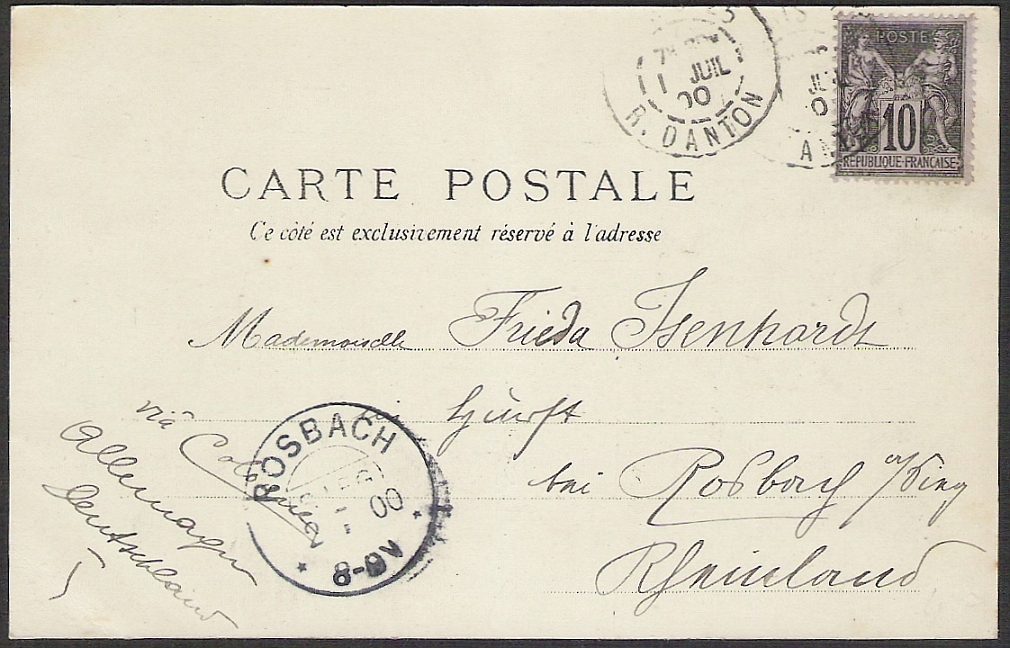 7E 1 JUIL 00
R. DANTON
POSTE
10
REPUBLIQUE FRANCAISE
CARTE POSTALE
Ce côté est exclusivement réservé à l'adresse
Mademoiselle Frieda Isenhardt
Hurst
bei Rosbach /Sieg
Rheinland
viâ Cologne
Allemagne
Deutschland
ROSBACH
00
8-9V